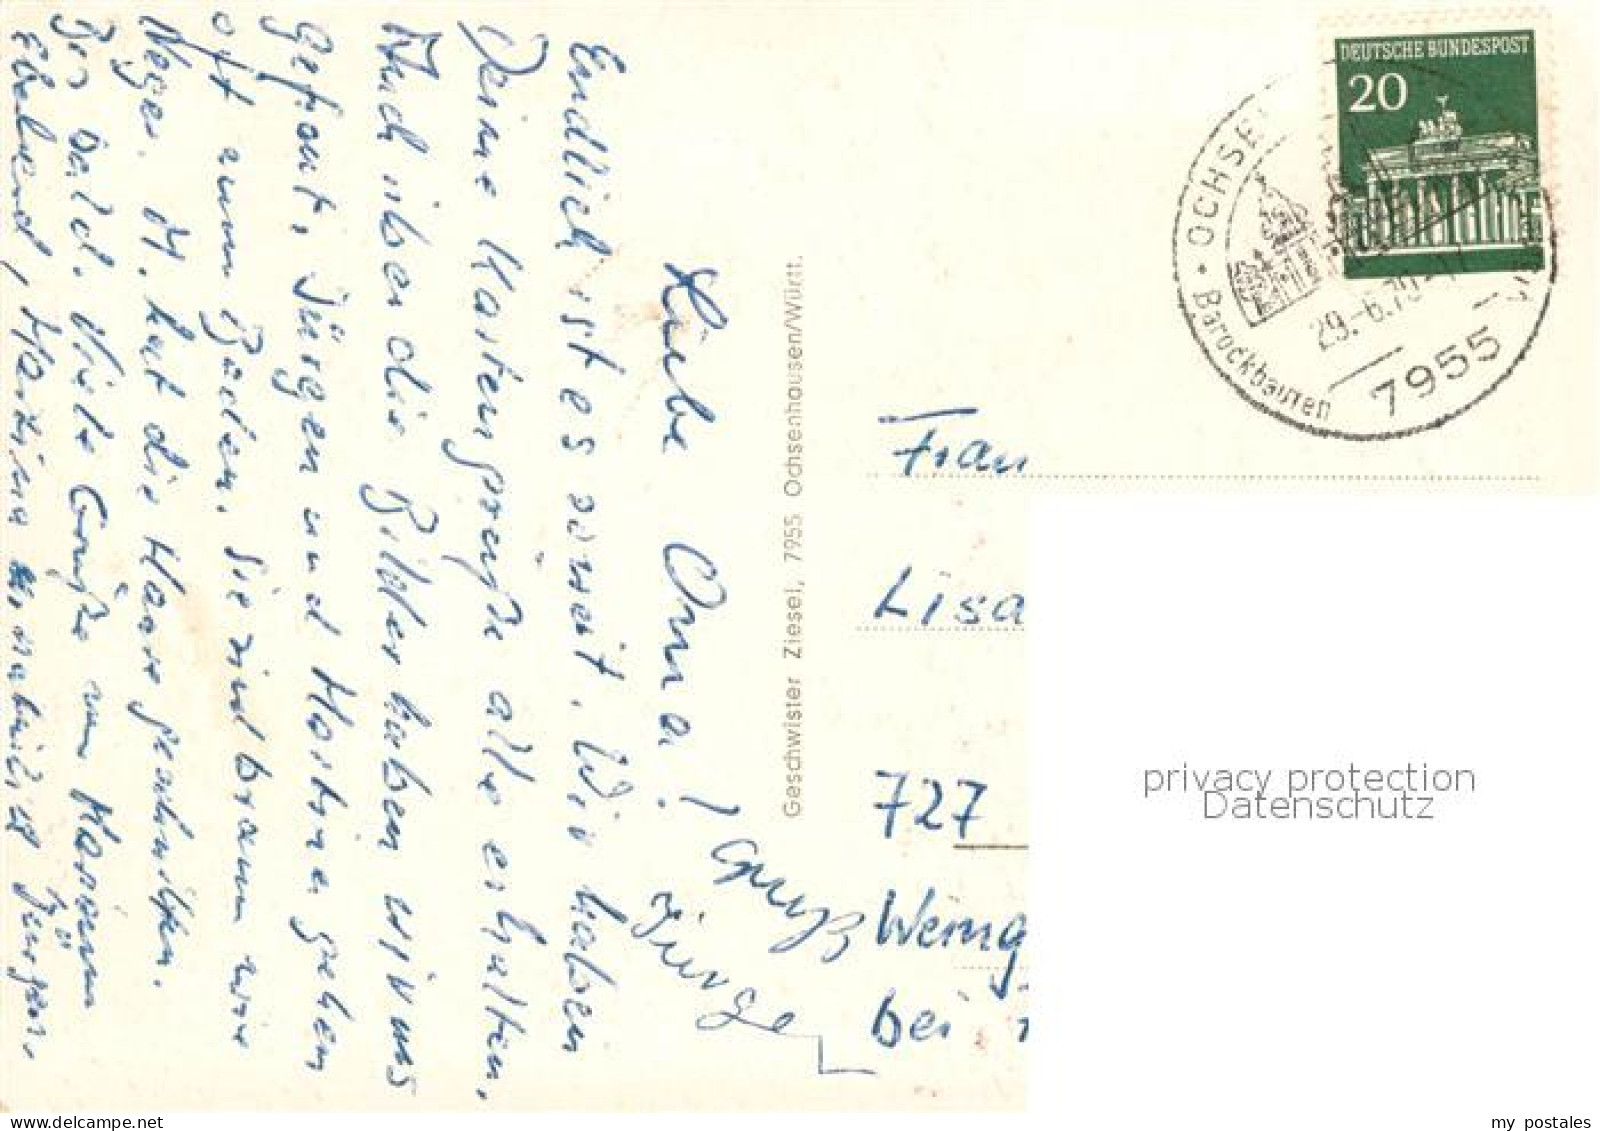 Liebe Oma!
Endlich ist es soweit. Wir haben
Deine Kartengrüße alle erhalten,
Auch über die Bilder haben wir uns
gefreut. Jürgen und Martina gehen
oft zum Baden. Sie sind braun wie
Neger. M. hat die Haare geschnitten.
Bis bald. Viele Grüße von
Ekehard, Martina und Jürgen.
Gruß
Jürge
Geschwister Ziesel, 7955 Ochsenhausen/Württ.
DEUTSCHE BUNDESPOST
20
OCHSE
Barockbauten
29.-6.70-17
7955
Frau
Lisa
727
Weing
bei
privacy protection
Datenschutz
my postales